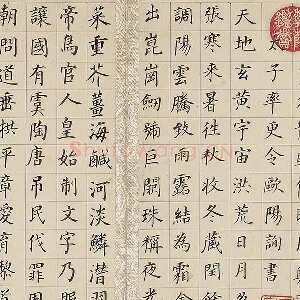 太子率更令歐陽詢書
天地玄黃宇宙洪荒日月
張寒來暑往秋收冬藏閏
調陽雲騰致雨露結為霜
出崑崗劍號巨闕珠稱夜光
菜重芥薑海鹹河淡鱗潛羽
帝鳥官人皇始制文字乃服
讓國有虞陶唐弔民伐罪
朝問道垂拱平章愛育黎